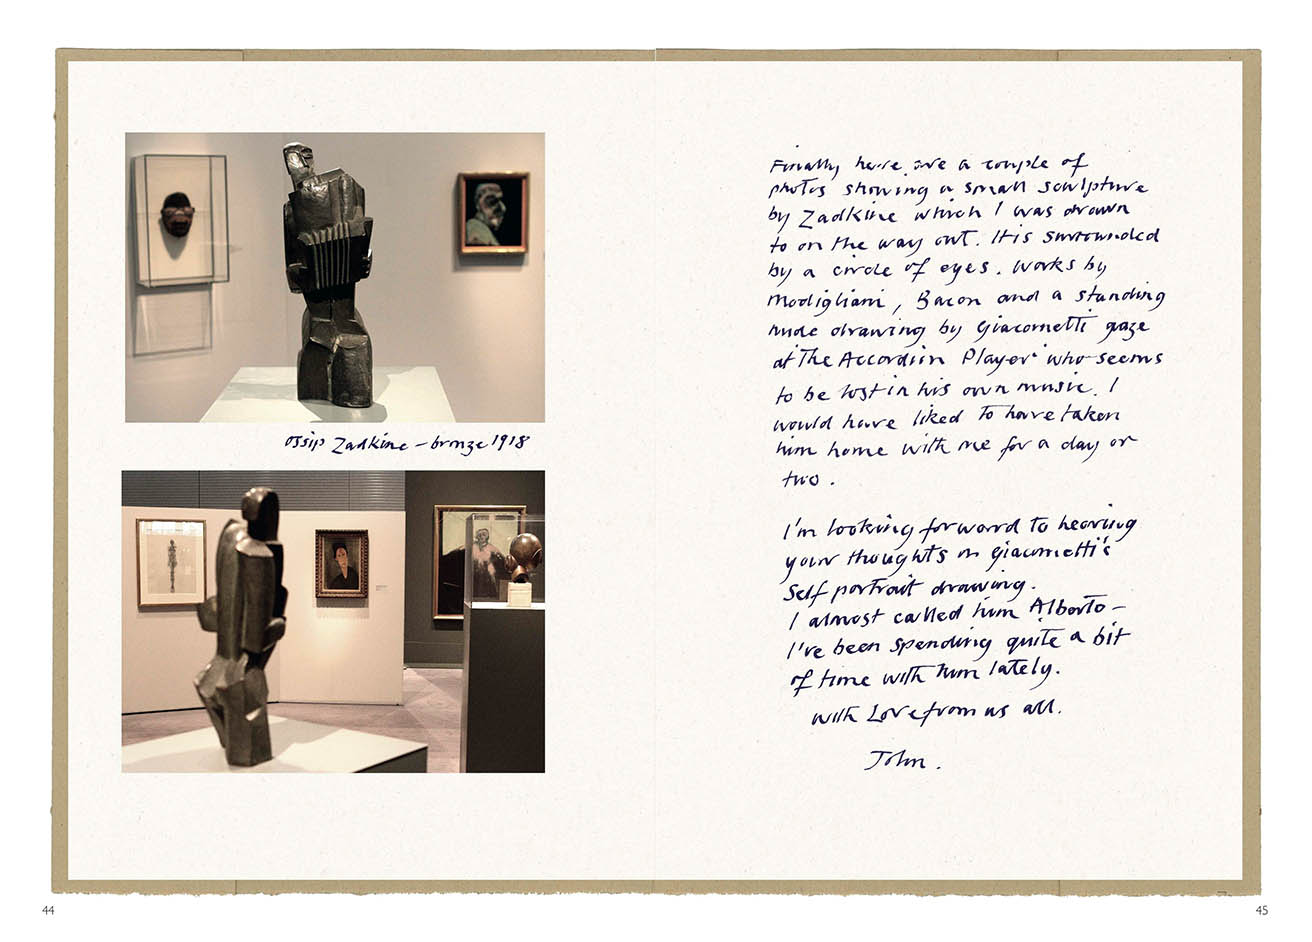 ossip Zadkine – bronze 1918
Finally here are a couple of
photos showing a small sculpture
by Zadkine which I was drawn
to on the way out. It is surrounded
by a circle of eyes. Works by
Modigliani, Bacon and a standing
nude drawing by Giacometti gaze
at 'The Accordion Player' who seems
to be lost in his own music. I
would have liked to have taken
him home with me for a day or
two.
I'm looking forward to hearing
your thoughts on Giacometti's
Self portrait drawing.
I almost called him Alberto –
I've been spending quite a bit
of time with him lately.
with Love from us all.
John.
44
45